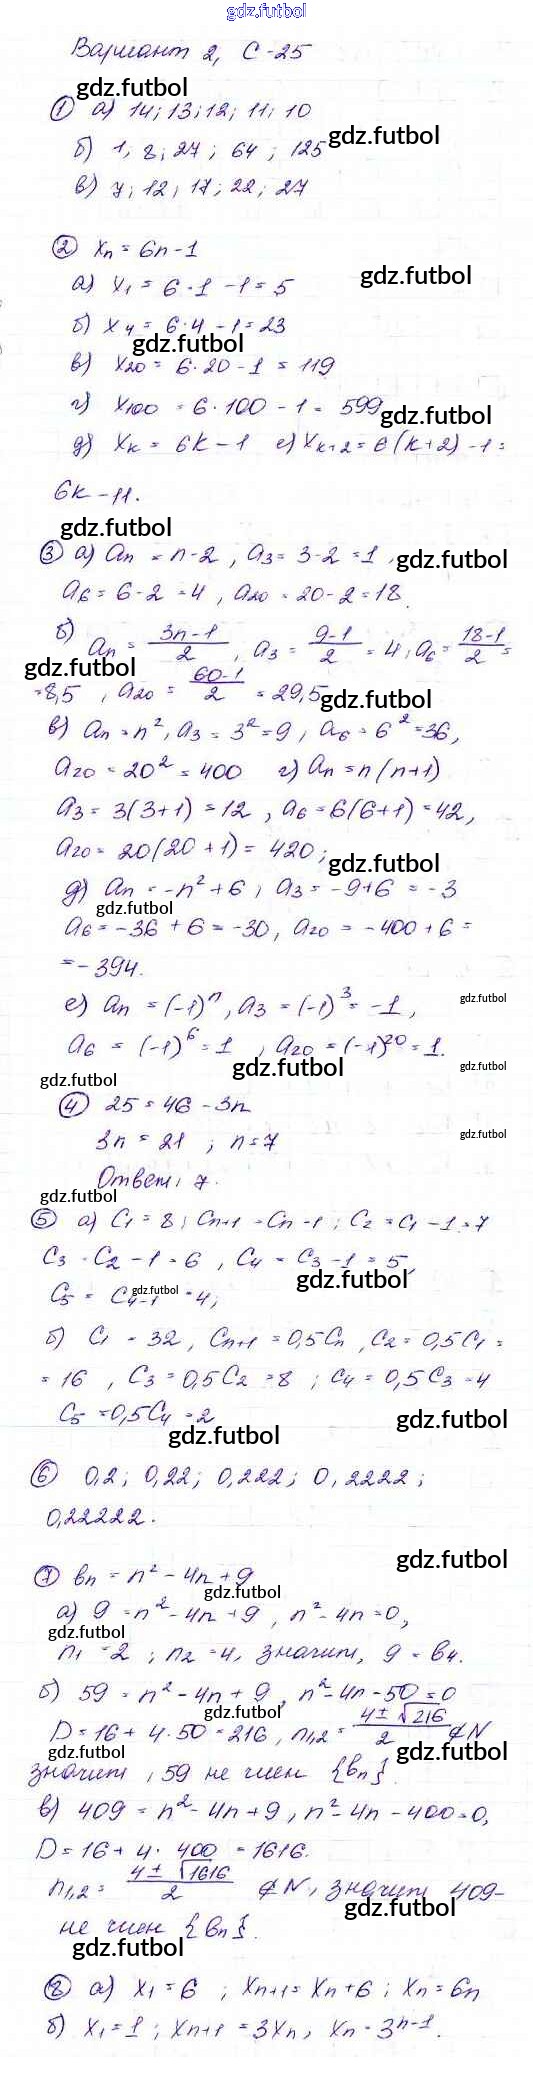 gdz.futbol
Вариант 2, С-25
gdz.futbol
① а) 14; 13; 12; 11; 10
gdz.futbol
б) 1; 8; 27; 64; 125
в) 7; 12; 17; 22; 27
② xₙ = 6n-1
gdz.futbol
а) x₁ = 6·1 -1 = 5
б) x₄ = 6·4 -1 = 23
gdz.futbol
в) x₂₀ = 6·20-1 = 119
г) x₁₀₀ = 6·100 - 1 = 599
gdz.futbol
д) xₖ = 6k-1 е) xₖ₊₂ = 6(k+2)-1 =
6k-11.
gdz.futbol
③ а) aₙ = n-2, a₃ = 3-2 = 1,
gdz.futbol
a₆ = 6-2 = 4, a₂₀ = 20-2 = 18.
б) aₙ = (3n-1)/2, a₃ = (9-1)/2 = 4; a₆ = (18-1)/2 =
gdz.futbol
= 8,5, a₂₀ = (60-1)/2 = 29,5
gdz.futbol
в) aₙ = n², a₃ = 3² = 9, a₆ = 6² = 36,
a₂₀ = 20² = 400 г) aₙ = n(n+1)
a₃ = 3(3+1) = 12, a₆ = 6(6+1) = 42,
a₂₀ = 20(20+1) = 420;
gdz.futbol
д) aₙ = -n²+6, a₃ = -9+6 = -3
gdz.futbol
a₆ = -36+6 = -30, a₂₀ = -400+6 =
= -394.
е) aₙ = (-1)ⁿ, a₃ = (-1)³ = -1,
gdz.futbol
a₆ = (-1)⁶ = 1, a₂₀ = (-1)²⁰ = 1.
gdz.futbol
gdz.futbol
④ 25 = 46-3n
3n = 21; n = 7
gdz.futbol
Ответ: 7.
gdz.futbol
⑤ а) C₁ = 8; Cₙ₊₁ = Cₙ-1; C₂ = C₁-1 = 7
C₃ = C₂-1 = 6, C₄ = C₃-1 = 5,
gdz.futbol
C₅ = C₄₋₁ = 4;
gdz.futbol
б) C₁ = 32, Cₙ₊₁ = 0,5Cₙ, C₂ = 0,5C₁ =
= 16, C₃ = 0,5C₂ = 8; C₄ = 0,5C₃ = 4
C₅ = 0,5C₄ = 2
gdz.futbol
gdz.futbol
⑥ 0,2; 0,22; 0,222; 0,2222;
0,22222.
gdz.futbol
⑦ bₙ = n²-4n+9
gdz.futbol
а) 9 = n²-4n+9, n²-4n = 0,
gdz.futbol
n₁ = 2; n₂ = 4, значит, 9 = b₄.
б) 59 = n²-4n+9, n²-4n-50 = 0
gdz.futbol
D = 16+4·50 = 216, n₁,₂ = (4±√216)/2 ∉ N
gdz.futbol
gdz.futbol
значит, 59 не член {bₙ}.
в) 409 = n²-4n+9, n²-4n-400 = 0,
D = 16+4·400 = 1616.
n₁,₂ = (4±√1616)/2 ∉ N, значит 409-
gdz.futbol
не член {bₙ}.
gdz.futbol
⑧ а) x₁ = 6; xₙ₊₁ = xₙ+6; xₙ = 6n
б) x₁ = 1; xₙ₊₁ = 3xₙ, xₙ = 3ⁿ⁻¹.